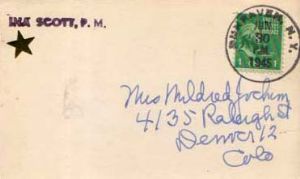 INA SCOTT, P. M.
N. Y.
JUN
30
P.M.
1945
1 1
Miss Mildred Jochim
4135 Raleigh St
Denver 12
Colo